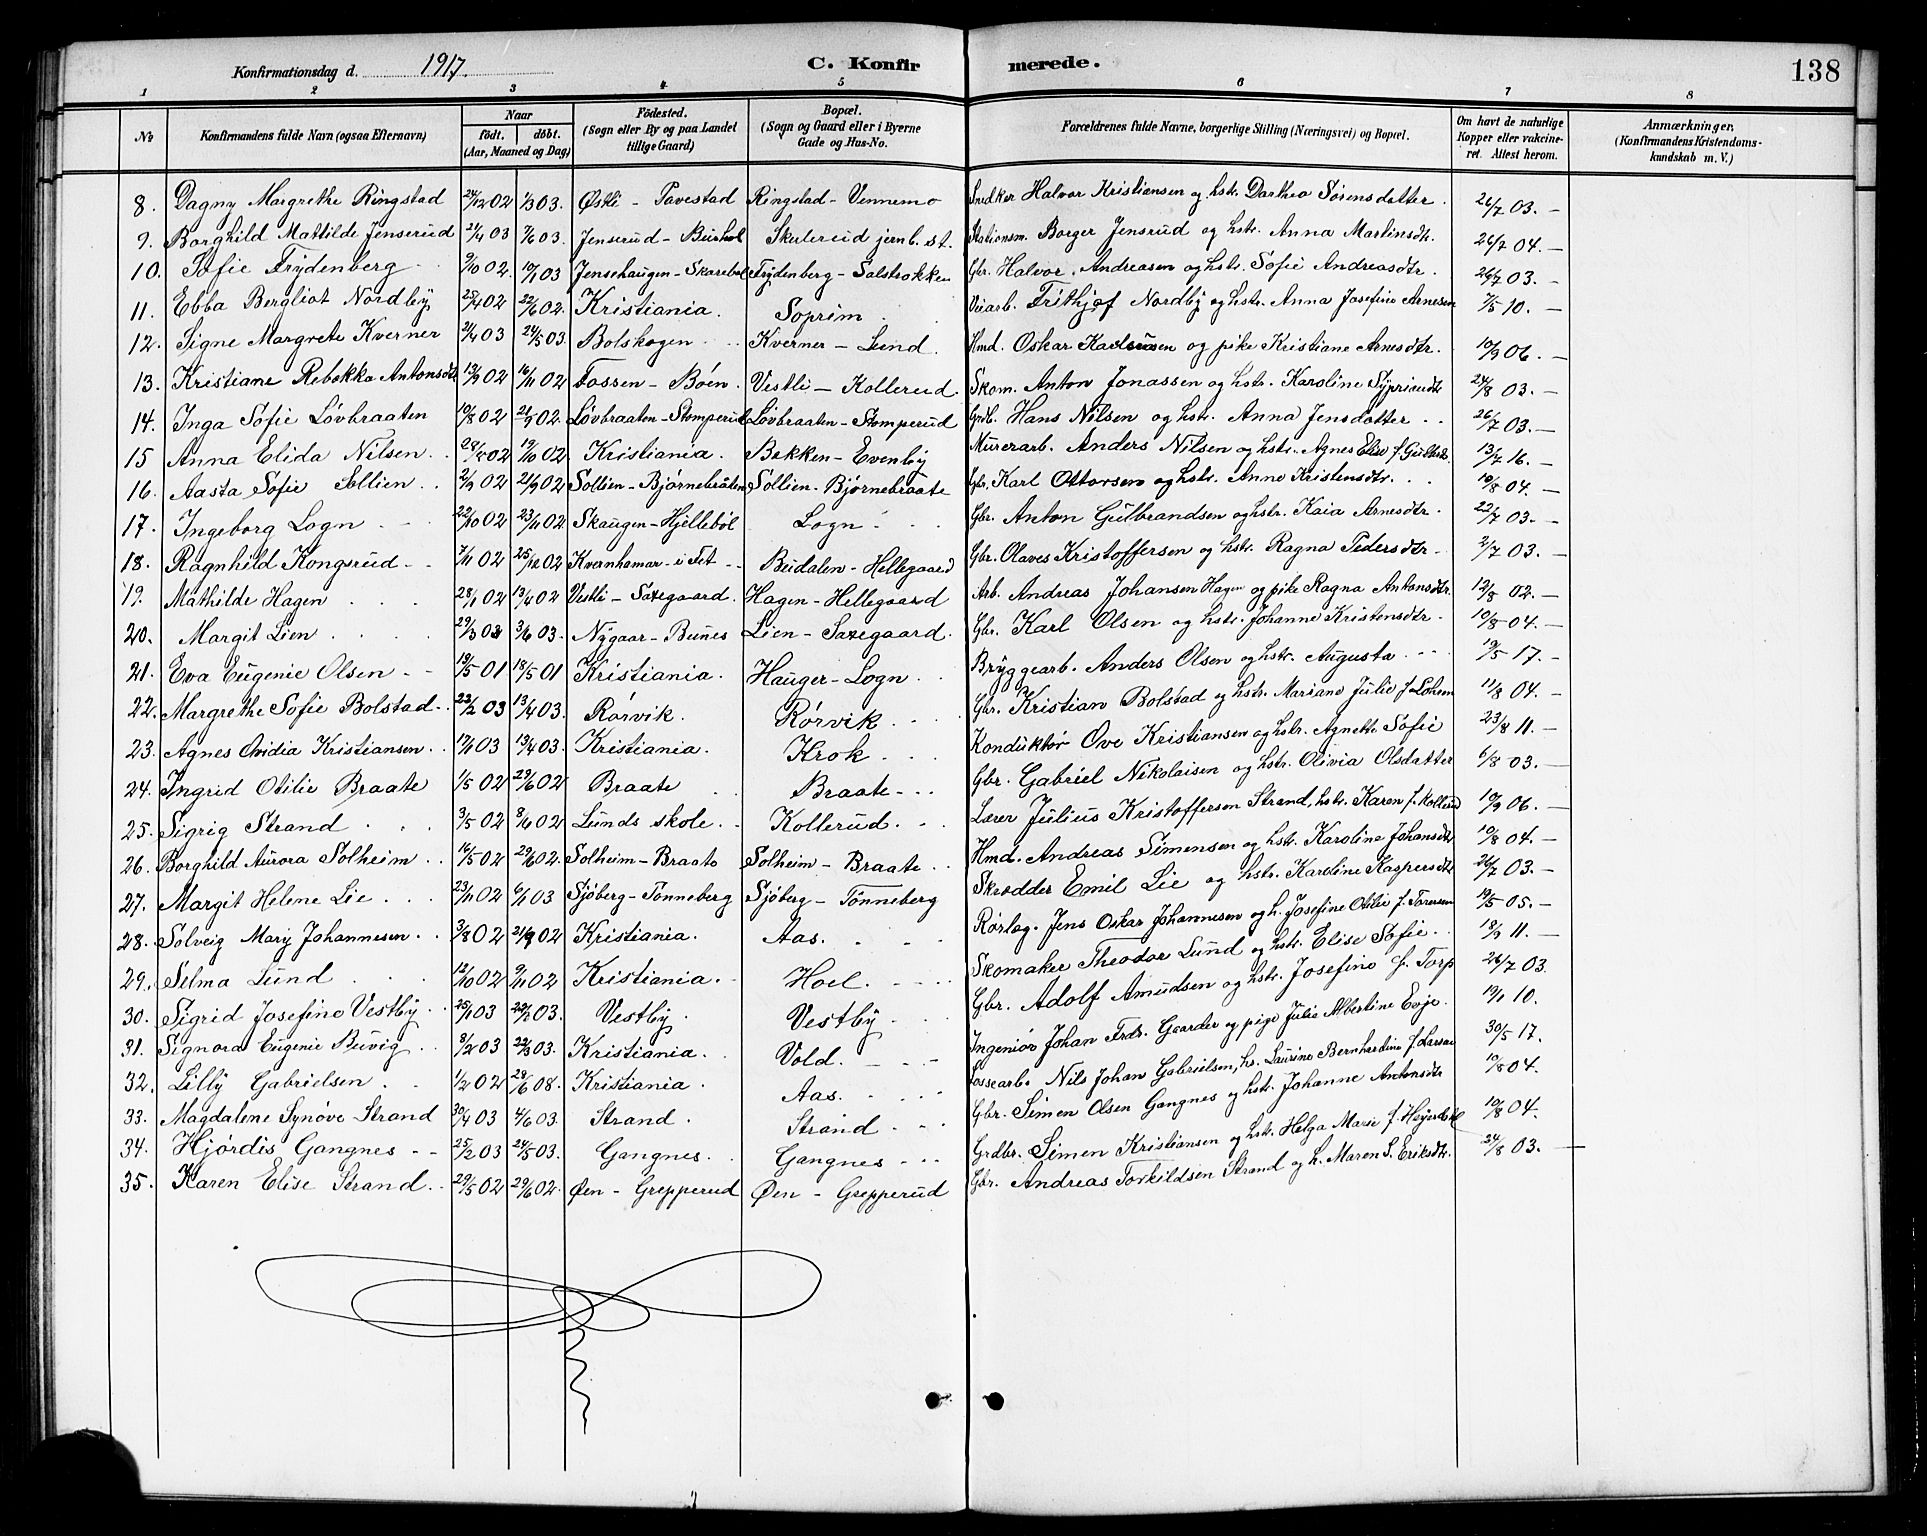 138
Konfirmationsdag d. 1917. C. Konfirmerede.
1 2 3 4 5 6 7 8
No Konfirmandens fulde Navn (ogsaa Efternavn) Naar født. døbt. (Aar, Maaned og Dag) Fødested. (Sogn eller By og paa Landet tillige Gaard) Bopæl. (Sogn og Gaard eller i Byerne Gade og Hus-No. Forældrenes fulde Navne, borgerlige Stilling (Næringsvei) og Bopæl. Om havt de naturlige Kopper eller vakcineret. Attest herom. Anmærkninger. (Konfirmandens Kristendomskundskab m. V.)
8. Dagny Margrethe Ringstad 24/12 02 1/3 03. Østli - Tavestad Ringstad - Vennemo Snedker Halvor Kristiansen og hstr. Darthea Sørensdatter. 26/7 03. -
9. Borghild Mathilde Jenserud 21/4 03 7/6 03. Jenserud - Skulerud jernb. st. Stationsm. Borger Jensrud og hstr. Anna Martinsdtr. 26/7 04. -
10. Sofie Frydenberg 9/10 02. 10/1 03 Jensehaugen - Skarebøl Frydenberg - Gbr. Halvor Andreasen og hstr. Sofie Andreasdtr. 26/7 03. -
11. Ebba Bergliot Nordby 25/4 02 22/6 02. Kristiania. Soprim Veiarb. Frithjof Nordby og hstr. Anna Josefine Arnesen 7/5 10. -
12. Signe Margrete Kverner 21/4 03 24/5 03. Bolskogen Kverner - Lund. Hmd. Oskar og pike Kristiane Arnesdtr. 10/9 06. -
13. Kristiane Rebekka Antonsdtr 13/9 02 16/11 02 Fossen - Boen. Vestli - Kollerud. Skom. Anton Jonassen og hstr. Karoline 24/8 03. -
14. Inga Sofie Løvbraaten 10/8 02 21/9 02. Løvbraaten - Stomperud Løvbraaten - Stomperud Hans Nilsen og hstr. Anna Jensdatter 26/7 03. -
15 Anna Elida Nilsen 02 19/10 02. Kristiania. Bakken - Evenby Murerarb. Anders Nilsen og hstr. Agnes Elise f. 13/7 16. -
16. Aasta Sofie Sollien 2/9 02 21/9 02 Sollien - Bjørnebråten Sollien - Bjørnebraate Gbr. Karl Ottersen og hstr. Anne Kristensdtr. 10/8 04. -
17. Ingeborg Logn 22/10 02 23/11 02 Skaugen - Hjellebøl Logn Gbr. Anton Gulbrandsen og hstr. Kaia Arnesdtr. 22/7 03. -
18. Ragnhild Kongsrud 7/11 02 25/12 02 Kvanhamar - i Fet Beidalen - Hellegaard Gbr. Olaves Kristoffersen og hstr. Ragna Pedersdtr. 2/7 03. -
19. Mathilde Hagen 28/1 02 13/4 02 Vestli - Saxegaard. Hagen - Hellegaard Arb. Andreas Johansen Hagen og pike Ragna Antonsdtr. 12/8 02. -
20. Margit Lien 29/3 03 3/6 03. Nygaar - Bunes Lien - Saxegaard. Gbr. Karl Olsen og hstr. Johanne Kristensdtr. 10/8 04. -
21. Eva Eugenie Olsen 01 18/5 01 Kristiania. Hauger - Logn Bryggearb. Anders Olsen og hstr. Augusta 17. -
22. Margrethe Sofie Bolstad 22/2 03 13/4 03. Rørvik. Rørvik Gbr. Kristian Bolstad og hstr. Mariane Julie f. 11/8 04. -
23. Agnes Ovidia Kristiansen 03 13/4 03. Kristiania. Krok Konduktør Ove Kristiansen og hstr. Agnethe Sofie 23/8 11. -
24. Ingrid Otilie Braate 1/5 02 29/6 02 Braate Braate Gbr. Gabriel Nikolaisen og hstr. Olivia Olsdatter 6/8 03. -
25. Sigrig Strand 3/5 02 8/6 02 Lunds skole Kollerud Lærer Julius Kristoffersen Strand, hstr. Karen f. Kollerud 10/9 06. -
26. Borghild Aurora Solheim 16/5 02 29/6 02. Solheim - Braate Solheim - Braate Hmd. Andreas Simensen og hstr. Karoline Johansdtr. 10/8 04. -
27. Margit Helene Lie 23/11 02 6/1 03 Sjøberg - Tønneberg Sjøberg - Tønneberg Skrædder Emil Lie og hstr. Karoline Kaspersdtr 26/7 03. -
28. Solveig Mary Johannesen 3/8 02 21/9 02 Kristiania. Aas. Rørlæg. Jens Oskar Johannesen og h. Josefine Otilie f. 05. -
29. Selma Lund 12/10 02 9/11 02 Kristiania. Hoel. Skomaker Theodor Lund og hstr. Elise Sofie 18/9 11. -
30. Sigrid Josefine Vestby 25/1 03 22/2 03. Vestby. Vestby Gbr. Adolf Amundsen og hstr. Josefine f. Torp 26/7 03.
31. Signora Eugenie Buvig 8/2 03 22/3 03. Kristiania. Vold. Ingeniør Johan Frdr. Gaarder og pige Julie Albertine Evje. 19/1 10.
32. Lilly Gabrielsen 1/2 02 29/6 08. Kristiania. Aas. Lossearb. Nils Johan Gabrielsen, hs. Laurine Bernhardine f. Larsen 30/5 17.
33. Magdalene Synøve Strand 30/4 03 4/6 03. Strand. Strand Gbr. Simen Olsen Gangnes og hstr. Johanne Antonsdtr 10/8 04.
34. Hjørdis Gangnes 25/2 03 24/5 03. Gangnes. Gangnes Grdbr. Simen Kristiansen og hstr. Helga Marie f. 10/8 04.
35. Karen Elise Strand 29/5 02 29/6 02. Øen - Grepperud Øen - Grepperud Gbr. Andreas Torkildsen Strand og h. Maren S. Eriksdtr. 24/8 03. -